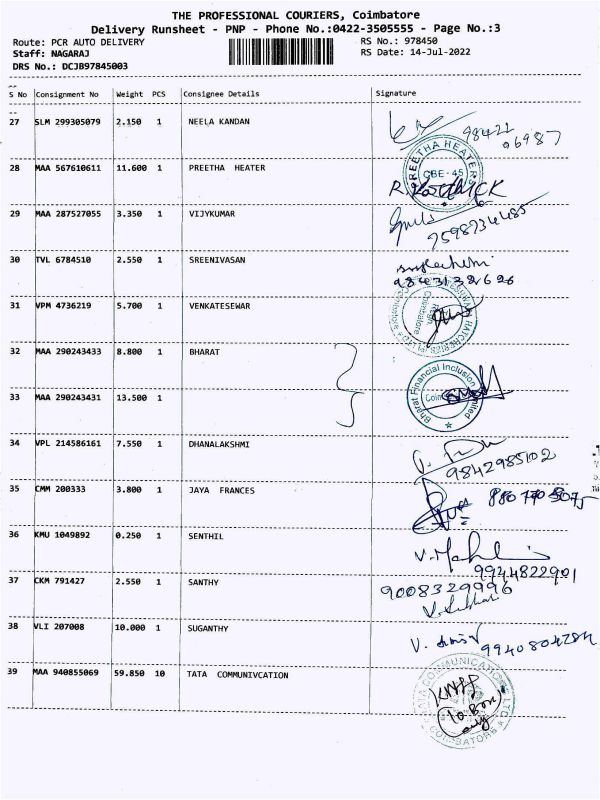 THE PROFESSIONAL COURIERS, Coimbatore
Delivery Runsheet - PNP - Phone No.:0422-3505555 - Page No.:3
Route: PCR AUTO DELIVERY RS No.: 978450
Staff: NAGARAJ RS Date: 14-Jul-2022
DRS No.: DCJB97845003
S No Consignment No Weight PCS Consignee Details Signature
27 SLM 299305079 2.150 1 NEELA KANDAN
98422 06987
28 MAA 567610611 11.600 1 PREETHA HEATER
PREETHA HEATERS
CBE - 45
R.
29 MAA 287527055 3.350 1 VIJYKUMAR
7598734485
30 TVL 6784510 2.550 1 SREENIVASAN
9843138626
31 VPM 4736219 5.700 1 VENKATESEWAR
HATCHERIES
Regn.
Coimbatore
32 MAA 290243433 8.800 1 BHARAT
Bharat Financial Inclusion Limited
33 MAA 290243431 13.500 1
34 VPL 214586161 7.550 1 DHANALAKSHMI
9842985102
35 CMM 200333 3.800 1 JAYA FRANCES
36 KMU 1049892 0.250 1 SENTHIL
9944822901
37 CKM 791427 2.550 1 SANTHY
9008329996
38 VLI 207008 10.000 1 SUGANTHY
9940804284
39 MAA 940855069 59.850 10 TATA COMMUNIVCATION
COMMUNICATIONS LTD
COIMBATORE
10 Box
only